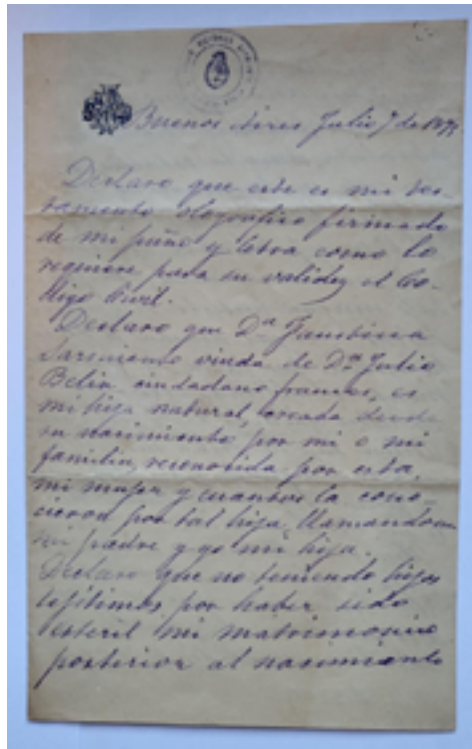 Buenos Aires Julio 7 de 1873
Declaro que este es mi tes-
tamento olografico firmado
de mi puño y letra como lo
requiere para su validez el Co-
digo Civil.
Declaro que Dª Faustina
Sarmiento viuda de Dⁿ Julio
Belin ciudadano frances, es
mi hija natural, creada desde
su nacimiento por mi o mi
familia, reconocida por esta,
mi mujer y cuantos la cono-
cieron por tal hija, llamandome
mi padre y yo mi hija.
Declaro que no teniendo hijos
lejitimos por haber sido
esteril mi matrimonio
posterior al nacimiento